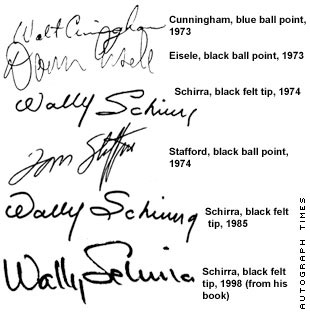 Walt Cunningham
Cunningham, blue ball point,
1973
Donn Eisele
Eisele, black ball point, 1973
Wally Schirra
Schirra, black felt tip, 1974
Tom Stafford
Stafford, black ball point,
1974
Wally Schirra
Schirra, black felt
tip, 1985
Wally Schirra
Schirra, black felt
tip, 1998 (from his
book)
AUTOGRAPH TIMES